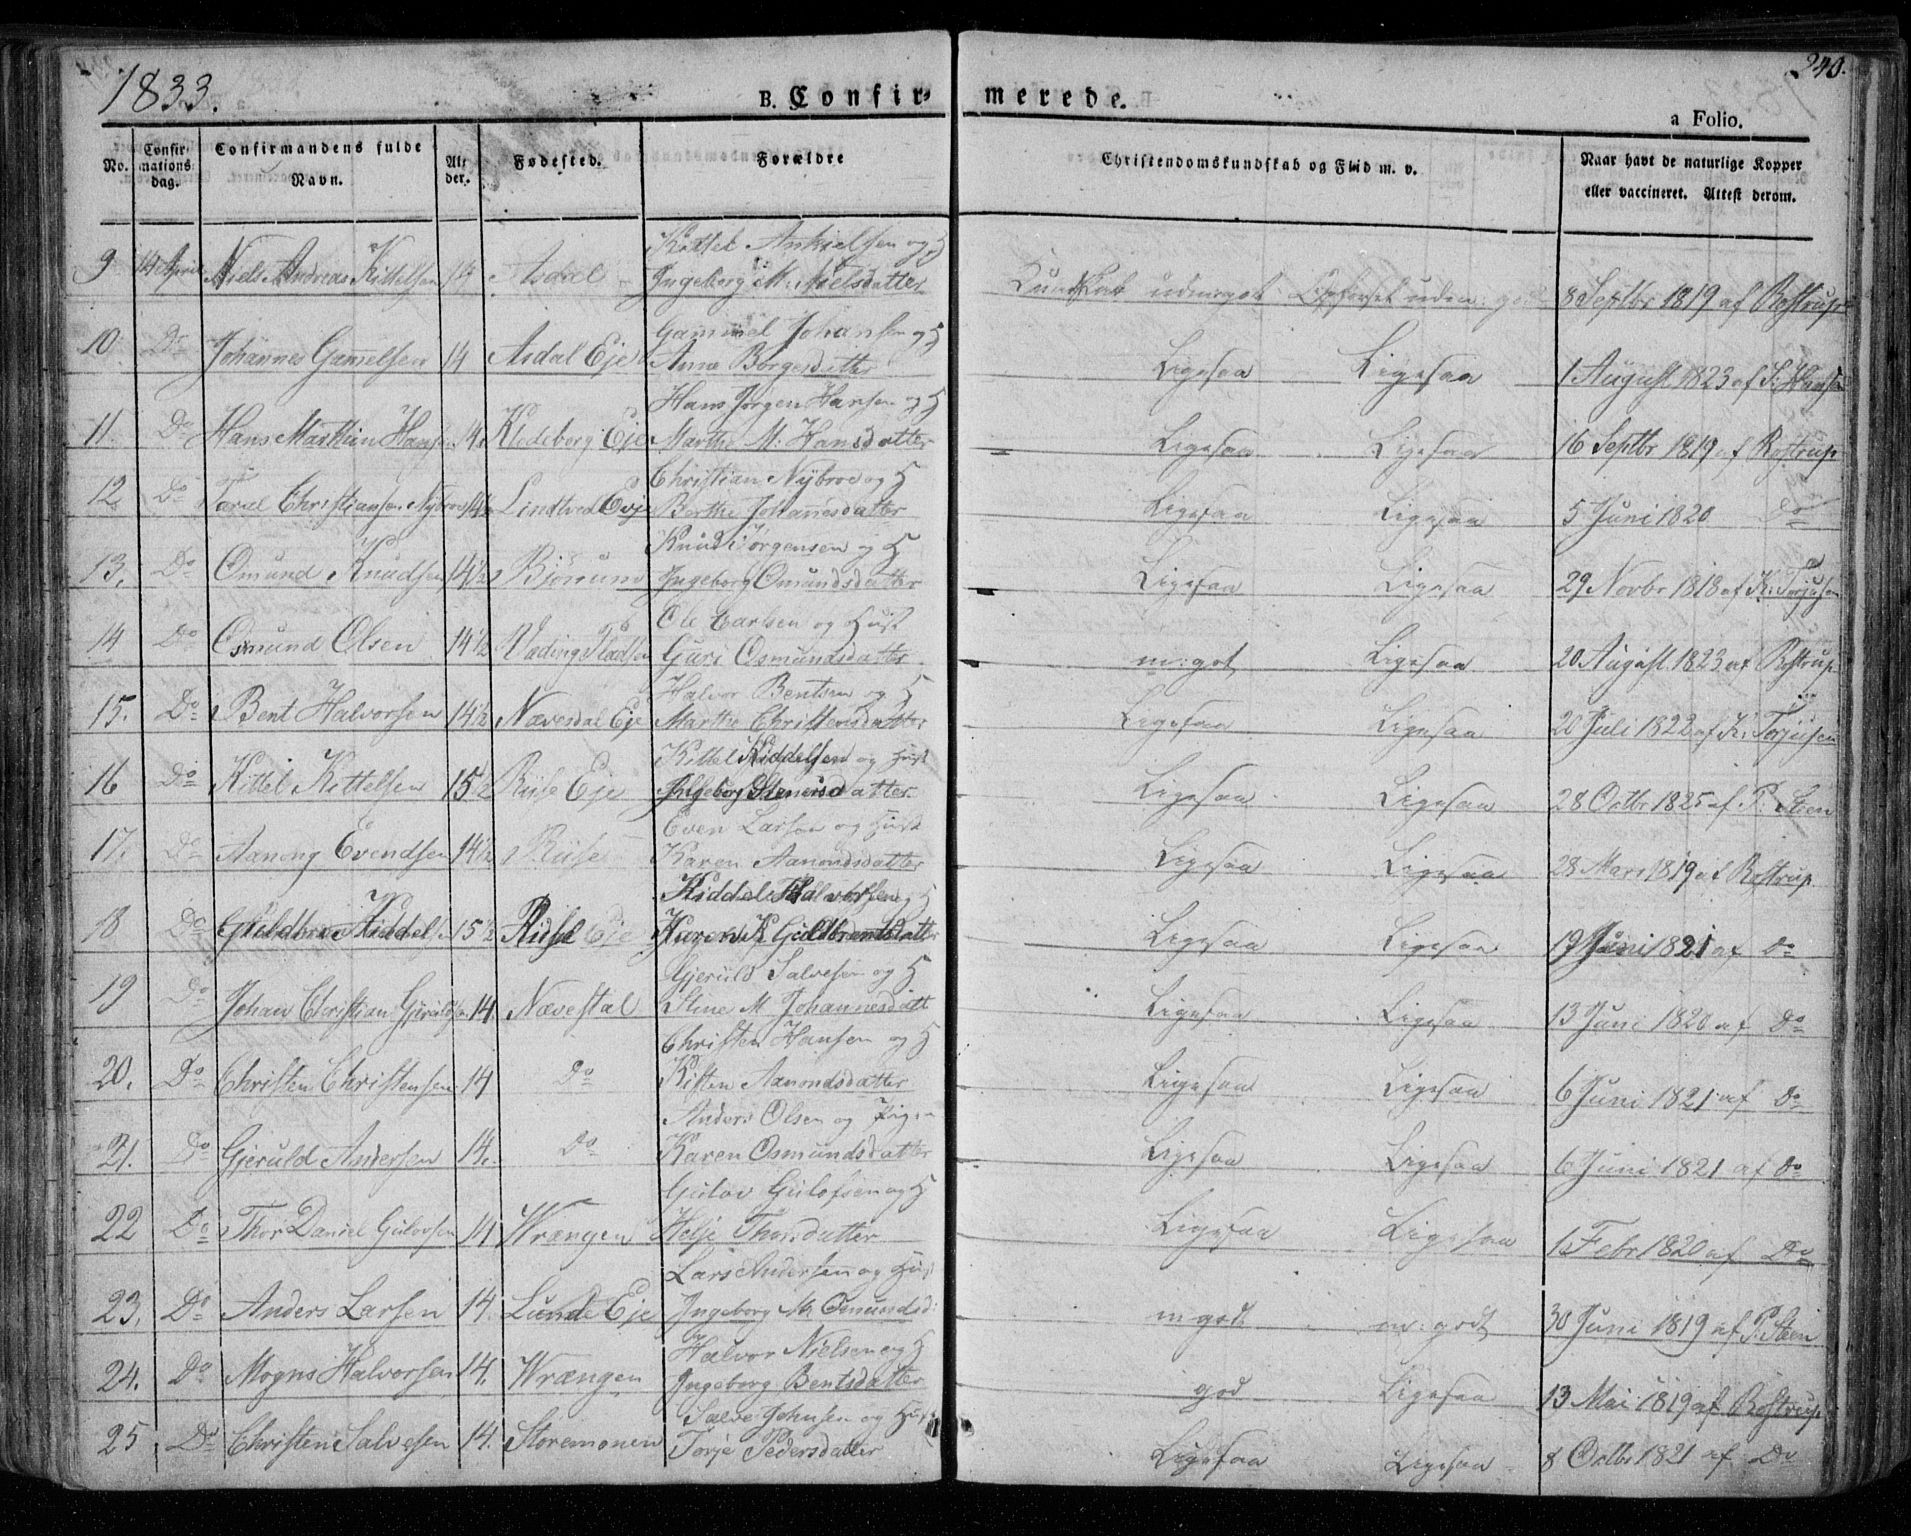 1833.
240.
B. Confirmerede.
a Folio.
No. Confirmations dag. Confirmandens fulde Navn. Alder. Fødested. Forældre Christendomskundskab og Flid m. v. Naar havt de naturlige Kopper eller vaccineret. Attest derom.
Kittel Ankielsen og H
9 14 April Niels Andreas Kittelsen 14 Asdal Ingeborg M: Nielsdatter Kundskab udm: got Opførsel uden: 8 Septbr 1819 af Rostrup
Gammel Johansen og H
10 Do Johannes Gamelsen 14 Asdal Eje Anne Borgesdatter Ligesaa Ligesaa 1 August 1823 af S: Hansen
Hans Jørgen Hansen og H
11. Do Hans Marthin Hansen 14. Klodeborg Eje Marthe M: Hansdatter Ligesaa Ligesaa 16 Septbr 1819 af Rostrup
Christian Nybroe og H
12 Do Taral Christiansen Nybroe 14½ Lindtved Eje Berthe Johanesdatter Ligesaa Ligesaa 5 Juni 1820 Do
Knud Jørgensen og H
13. Do Omund Knudsen 14½ Bjørum Ingeborg Omundsdatter Ligesaa Ligesaa 29 Novbr 1818 af K: Torjusen
Ole Carlsen og Hust
14 Do Osmund Olsen 14½ Vading Pladsen Guri Osmundsdatter m: got Ligesaa 20 August 1823 af Rostrup
Halvor Bentsen og H
15. Do Bent Halvorsen 14½ Nævesdal Eje Marthe Christensdatter Ligesaa Ligesaa 20 Juli 1822 af K: Torjusen
Kittel Kiddelsen og Hust
16 Do Kittel Kittelsen 15½ Riise Eje Ingeborg Stenersdatter Ligesaa Ligesaa 28 Octbr 1825 af P: Steen
Even Larsen og Hust
17. Do Aanong Evendsen 14½ Riise Karen Aanondsdatter Ligesaa Ligesaa 28 Mars 1819 af Rostrup
Kiddel Halvorsen og H
18 Do Guldbran Kiddels. 15½ Riise Eje Karen K Guldbrantsdatter Ligesaa Ligesaa 19 Juni 1821 af Do
Gjeruld Salvesen og H
19 Do Johan Christian Gjeruldsen 14. Nævestal Stine M. Johannesdatt Ligesaa Ligesaa 13 Juni 1820 af Do
Christen Hansen og H
20. Do Christen Christensen 14 Do Kisten Aanondsdatter Ligesaa Ligesaa 6 Juni 1821 af Do
Anders Olsen og Pigen
21. Do Gjeruld Andersen 14. Do Karen Osmundsdatter Ligesaa Ligesaa 6 Juni 1821 af Do
Gulov Gulofsen og H
22 Do Thor Daniel Gulovsen 14 Wrængen Helje Thorsdatter Ligesaa Ligesaa 1 Febr 1820 af Do
Lars Andersen og Hust
23. Do Anders Larsen 14. Lunde Eje Ingeborg M. Osmundsd: m god. m: godt 30 Juni 1819 af P: Steen
Halvor Nielsen og H
24. Do Mogns Halvorsen 14. Wrængen Ingeborg Bentsdatter god Ligesaa 13 Mai 1819 af Rostrup
Salve Johnsen og Hust
25 Do Christen Salvesen 14. Storemonen Torje Pedersdatter Ligesaa Ligesaa 8 Octbr 1821 af Do